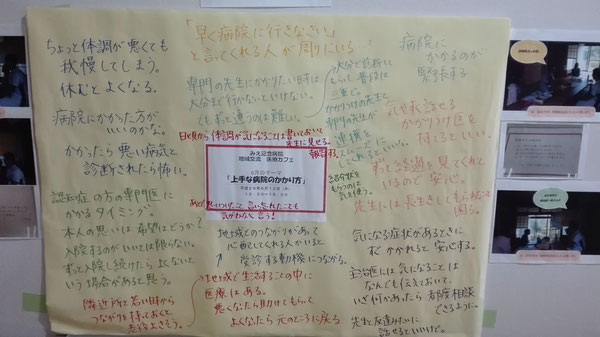 「早く病院に行きなさい」
と言ってくれる人が周りにいる
ちょっと体調が悪くても
我慢してしまう。
休むとよくなる。
病院にかかった方が
いいのかな。
かかったら悪い病気と
診断されたら怖い。
認知症の方の専門医に
かかるタイミング。
本人の思いは希望はどうか?
入院するのがいいとは限らない。
ずっと入院し続けたら よくないと
いう場合があると思う。
隣近所と若い時から
つながりを持っておくと
専門の先生にかかりたい時は
大分まで行かないといけない。
でもずっと通うのは難しい。
大分で診断して
もらって普段は
三重で。
かかりつけの先生と
専門の先生が
連携を
日頃から体調が気になることは書いておいて
先生に見せる。
みえ記念病院
地域交流 医療カフェ
6月のテーマ
「上手な病院のかかり方」
気がねなく言う!
地域とのつながりがあって
心配してくれる人がいると
受診する動機につながる。
地域で生活することの中に
医療はある。
悪くなったら助けてもらって
よくなったら元のところに戻る
病院に
かかるのが
緊張する
気やすく話せる
かかりつけ医を
持てるといい。
ずっと経過を見てくれて
いるので安心。
先生には長生きしてもらわないと
困る。
気になる症状があるときに
すぐかかれると安心する。
主治医には気になることは
なんでも伝えておいて、
いざ何かあったら都度相談
できるように。
先生と友達みたいに
話せるといいけど。